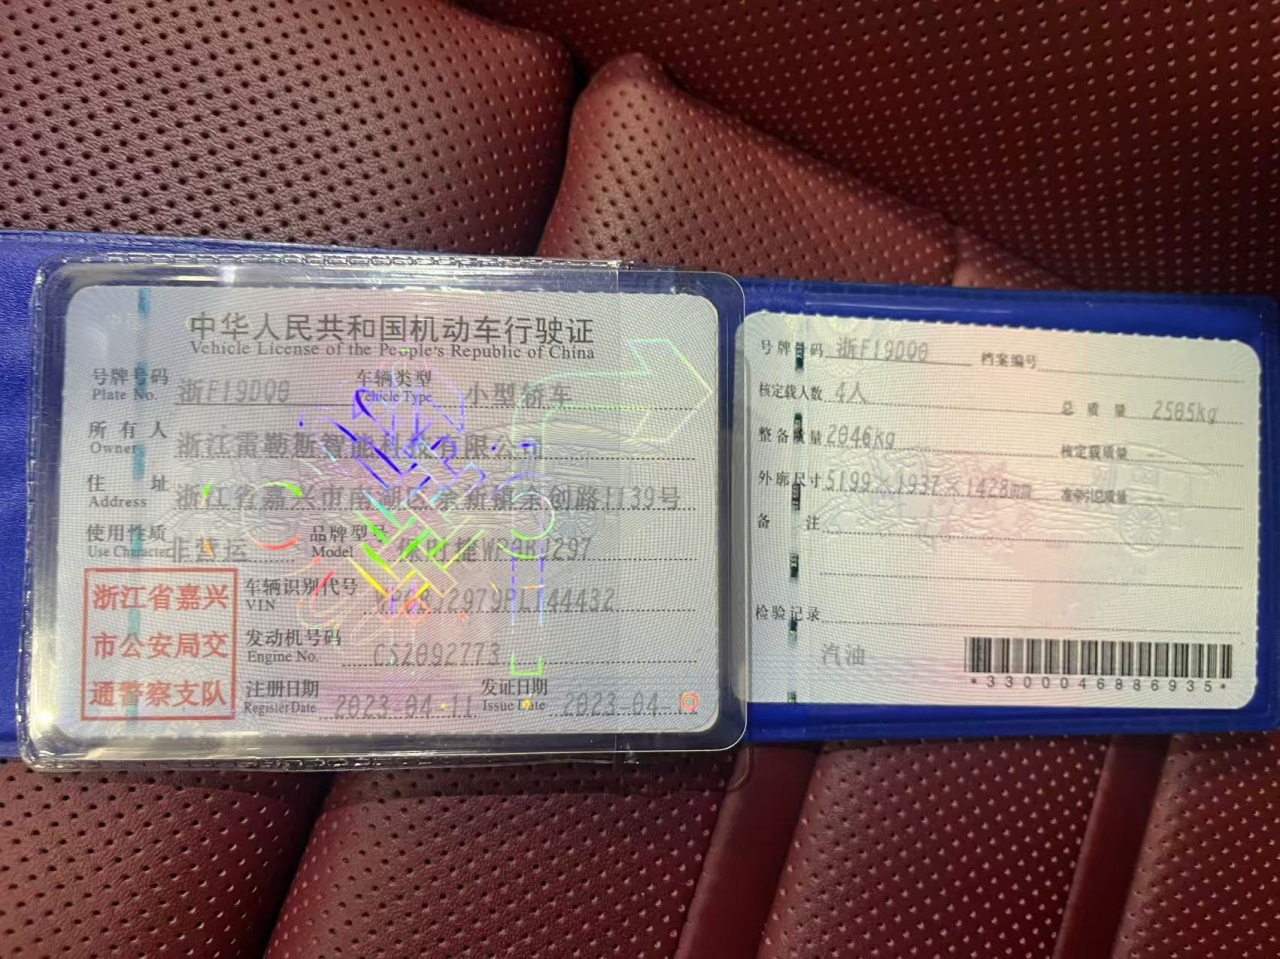 中华人民共和国机动车行驶证
Vehicle License of the People's Republic of China
号牌号码 浙F19DQ0 车辆类型 小型轿车
Plate No. Vehicle Type
所有人 浙江雷勒斯智能科技有限公司
Owner
住址 浙江省嘉兴市南湖区余新镇余创路1139号
Address
使用性质 非营运 品牌型号 保时捷WP0BJ297
Use Character Model
浙江省嘉兴
市公安局交
通警察支队
车辆识别代号
VIN
发动机号码 CS2092773
Engine No.
注册日期 2023-04-11 发证日期 2023-04-
Register Date Issue Date
号牌号码 浙F19DQ0 档案编号
核定载人数 4人 总质量 2585kg
整备质量 2046kg 核定载质量 --
外廓尺寸 5199×1937×1428mm 准牵引总质量 --
备注
检验记录
汽油
*3300046886935*